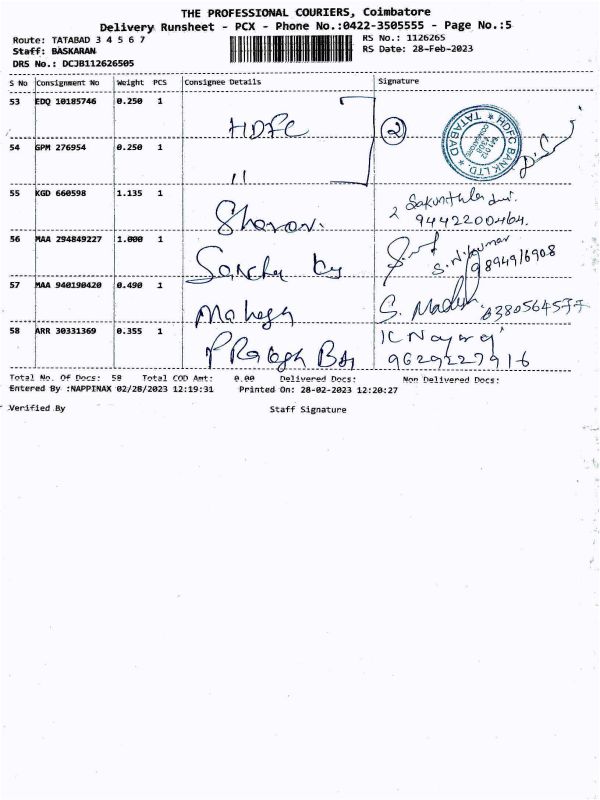 THE PROFESSIONAL COURIERS, Coimbatore
Delivery Runsheet - PCX - Phone No.:0422-3505555 - Page No.:5
Route: TATABAD 3 4 5 6 7
RS No.: 1126265
Staff: BASKARAN
RS Date: 28-Feb-2023
DRS No.: DCJB112626505
S No Consignment No Weight PCS Consignee Details Signature
53 EDQ 10185746 0.250 1 HDFC 2
HDFC BANK LTD. * TATABAD *
COIMBATORE
54 GPM 276954 0.250 1 "
55 KGD 660598 1.135 1 Sharon. Sakunthala
9442200464.
56 MAA 294849227 1.000 1 S.N.Kumar
9894916908
57 MAA 940190420 0.490 1 Mahesh S. 
8380564577
58 ARR 30331369 0.355 1
9629227916
Total No. Of Docs: 58 Total COD Amt: 0.00 Delivered Docs: Non Delivered Docs:
Entered By :NAPPINAX 02/28/2023 12:19:31 Printed On: 28-02-2023 12:20:27
Verified By Staff Signature